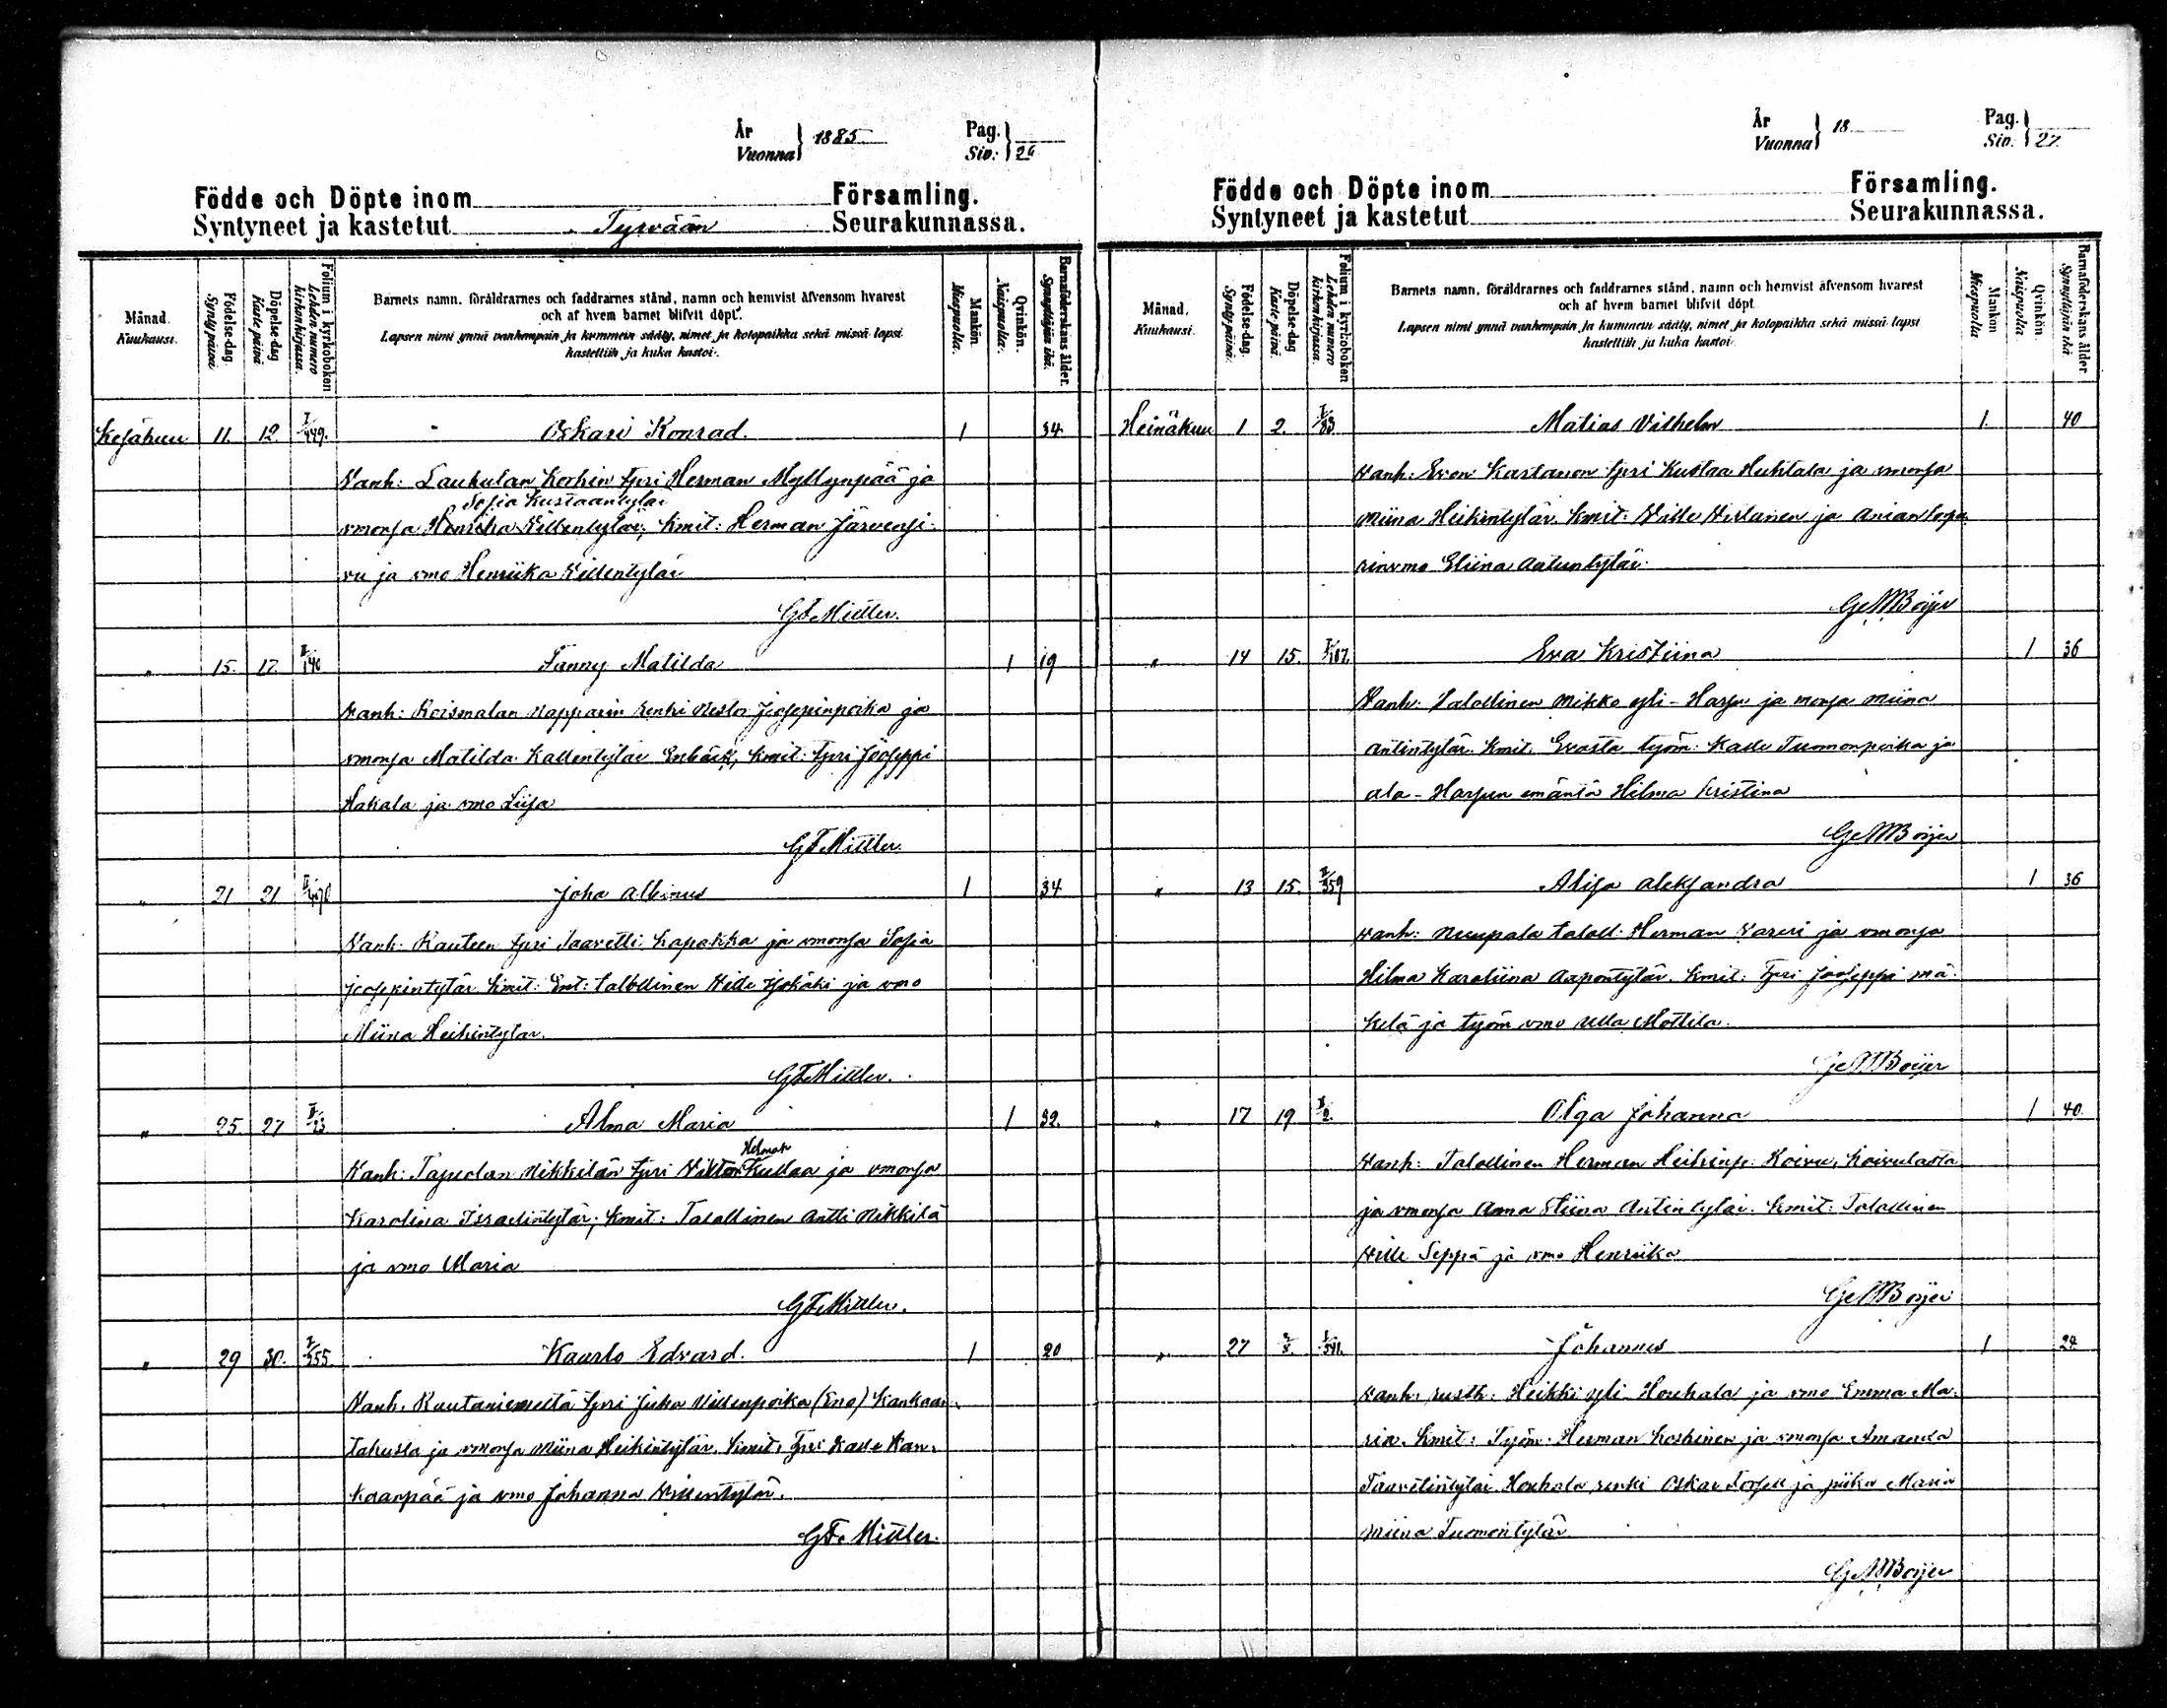 År
Vuonna } 1885
Pag.
Siv. } 26
Födde och Döpte inom Församling.
Syntyneet ja kastetut Tyrvään Seurakunnassa.
Månad.
Kuukausi.
Födelse-dag
Syntypäivä
Döpelse-dag
Kastepäivä
Folium i kyrkoboken
Lehden numero
kirkonkirjassa.
Barnets namn, föräldrarnes och faddrarnes stånd, namn och hemvist äfvensom hvarest
och af hvem barnet blifvit döpt.
Lapsen nimi ynnä vanhempain ja kummein sääty, nimet ja kotopaikka sekä missä lapsi
kastettiin ja kuka kastoi.
Mankön
Miespuolia.
Qvinkön.
Naispuolia.
Barnaföderskans ålder.
Synnyttäjän ikä.
Kesäkuu 11. 12. I/449. Oskari Konrad. 1 34.
Vanh: Laukulan Korkin tpri Herman Myllynpää ja
Sofia Kustaantytär
vmonsa Henrika Villentytär; Kmit: Herman Järvensi-
vu ja vmo Henriika Villentytär
G F Mittler.
" 15. 17. II/140 Fanny Matilda 1 19
Vanh: Roismalan Napparin renki Nestor Jooseppinpoika ja
vmonsa Matilda Kallentytär Enbäck, Kmit: tpri Jooseppi
Hakala ja vmo Liisa
G F Mittler.
" 21 21 Joha Albinus 1 34
Vanh. Rauteen tpri Taavetti Kapakka ja vmonsa Sofia
Joosepintytär Kmit: Ent: talollinen Ville Jokäki ja vmo
Miina Heikintytär.
G F Mittler.
" 25. 27 II/23 Alma Maria 1 32.
Herman
Vanh: Tapiolan Nikkilän tpri Viktor Kullaa ja vmonsa
Karolina Israelintytär; Kmit: Talollinen Antti Nikkilä
ja vmo Maria
G F Mittler.
" 29 30. I/355 Kaarlo Edvard. 1 20
Vanh. Rautaniemeltä tpri Juha Villenpoika (Eno) Kankaan-
takusta ja vmonsa Miina Heikintytär. Kmit: Tpri Kalle Kan-
kaanpää ja vmo Johanna Villentytär.
G F. Mittler.
År
Vuonna } 18
Pag.
Siv. } 27.
Födde och Döpte inom Församling.
Syntyneet ja kastetut Seurakunnassa.
Månad.
Kuukausi.
Födelse-dag.
Syntypäivä.
Döpelse-dag
Kastepäivä.
Folium i kyrkoboken
Lehden numero
kirkonkirjassa.
Barnets namn, föräldrarnes och faddrarnes stånd, namn och hemvist äfvensom hvarest
och af hvem barnet blifvit döpt.
Lapsen nimi ynnä vanhempain ja kummein sääty, nimet ja kotopaikka sekä missä lapsi
kastettiin ja kuka kastoi.
Mankön
Miespuolia
Qvinkön.
Naispuolia.
Barnaföderskans ålder
Synnyttäjän ikä.
Heinäkuu 1 2. I/83 Matias Vilhelm 1. 40
Vanh: Even Kartanon tpri Kustaa Huhtala ja vmonsa
Miina Heikintytär. Kmit: Ville Virtanen ja Anian torpa
rinvmo Eliina Antuntytär.
G M Boijer
" 14 15. I/107. Eva Kristiina 1 36
Vanh: Talollinen Mikko yli-Harju ja vmonsa Miina
Antintytär. Kmit. Evosta työm: Kalle Tuomonpoika ja
ala-Harjun emäntä Hilma Kristina
G M Boijer
" 13 15. II/359 Alisa Aleksandra 1 36
Vanh: Nuupala taloll: Herman Vareri ja vmonsa
Hilma Karoliina Aapontytär. Kmit: Tpri Jooseppi Mä-
kelä ja työm vmo Ulla Mottila.
G M Boijer
" 17 19 I/2. Olga Johanna 1 40
Vanh: Talollinen Herman Heikinp. Koivu, Koivulasta
ja vmonsa Anna Stiina Antintytär. Kmit: Talollinen
Ville Seppä ja vmo Henriika
G M Boijer
" 27 Johannes 1 24
Vanh: rusth: Heikki yli-Houhala ja vmo Emma Ma-
ria. Kmit: Työm: Herman Koskinen ja vmonsa Amanda
Taavetintytär Houhala, renki Oskar Forsell ja piika Maria
Miina Tuomontytär.
G M Boijer